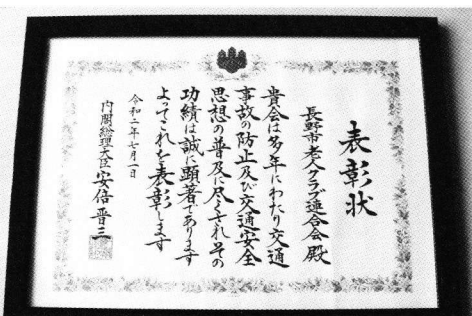 表彰状
長野市老人クラブ連合会 殿
貴会は多年にわたり交通
事故の防止及び交通安全
思想の普及に尽くされその
功績は誠に顕著であります
よってこれを表彰します
令和二年七月一日
内閣総理大臣 安倍晋三